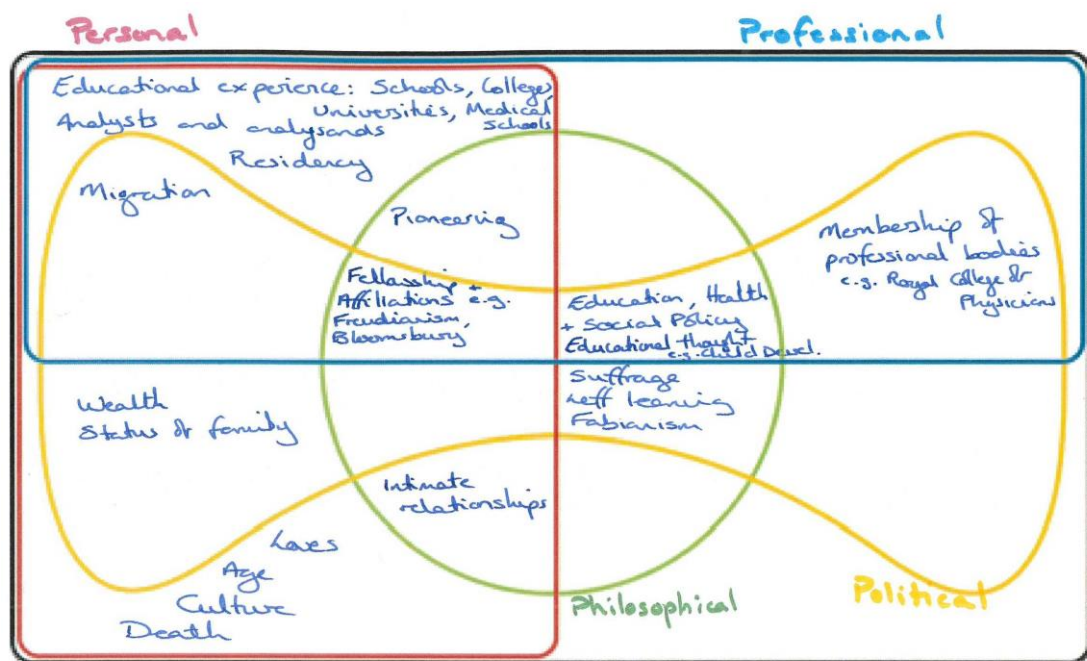 Personal
Professional
Educational experience: Schools, College,
Universities, Medical
Schools
Analysts and analysands
Residency
Migration
Pioneering
Membership of
professional bodies
e.g. Royal College of
Physicians
Fellowship +
Affiliations e.g.
Freudianism,
Bloomsbury
Education, Health
+ Social Policy
Educational thought
e.g. Child Devel.
Suffrage
Left leaning
Fabianism
Wealth
Status of family
Intimate
relationships
Loves
Age
Culture
Death
Philosophical
Political